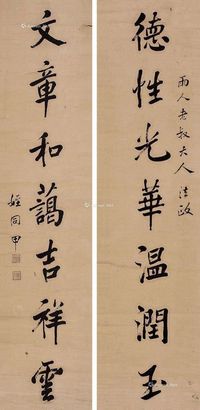 德性光華温潤玉
雨人老叔大人法政
文章和藹吉祥雲
姪同甲